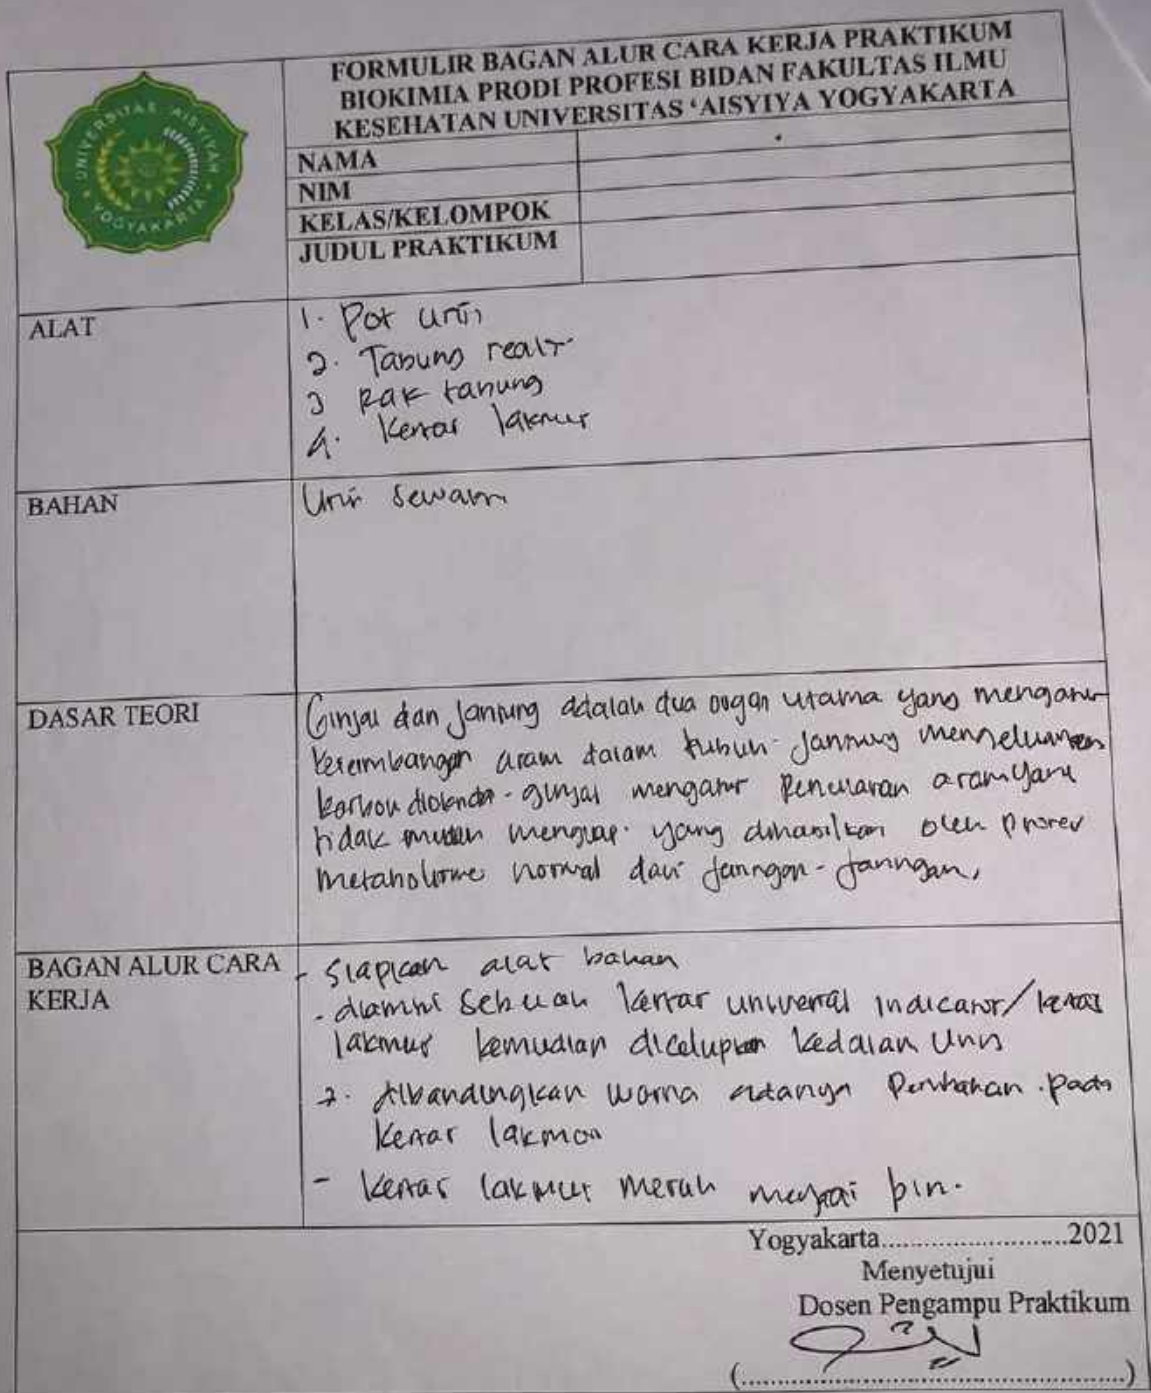 UNIVERSITAS 'AISYIYAH
YOGYAKARTA
FORMULIR BAGAN ALUR CARA KERJA PRAKTIKUM
BIOKIMIA PRODI PROFESI BIDAN FAKULTAS ILMU
KESEHATAN UNIVERSITAS ‘AISYIYA YOGYAKARTA
NAMA
NIM
KELAS/KELOMPOK
JUDUL PRAKTIKUM
ALAT
1. Pot urin
2. Tabung reaksi
3 Rak tabung
4. Kertas lakmus
BAHAN
Urin sewaktu
DASAR TEORI
Ginjal dan jantung adalah dua organ utama yang mengatur
keseimbangan asam dalam tubuh. jantung mengeluarkan
karbon dioksida - ginjal mengatur asam yang
tidak mudah menguap. yang dihasilkan oleh proses
metabolisme normal dari jaringan - jaringan,
BAGAN ALUR CARA
KERJA
- siapkan alat bahan
- diambil sebuah kertas universal indicator/kertas
lakmus kemudian dicelupkan kedalam Urin
2. dibandingkan warna adanya Perubahan pada
kertas
- kertas lakmus merah
Yogyakarta..........................2021
Menyetujui
Dosen Pengampu Praktikum
(......................................................)